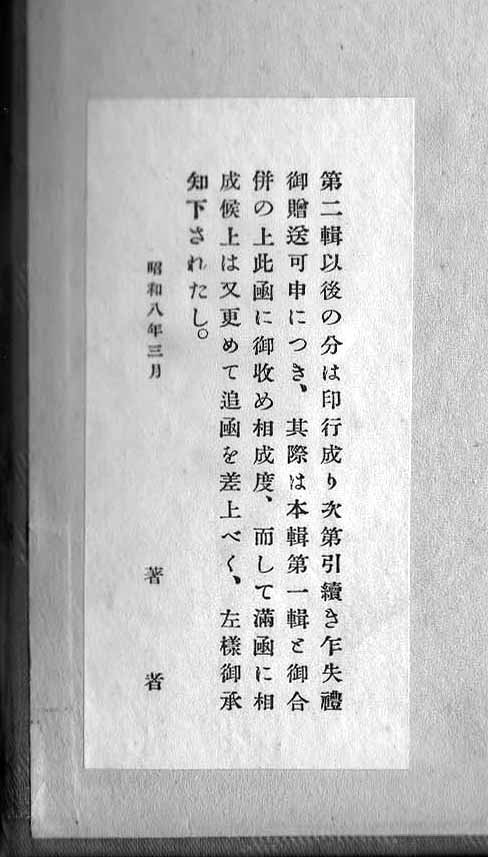 第二輯以後の分は印行成り次第引續き乍失禮
御贈送可申につき、其際は本輯第一輯と御合
併の上此函に御收め相成度、而して滿函に相
成候上は又更めて追函を差上べく、左樣御承
知下されたし。
昭和八年三月
著者